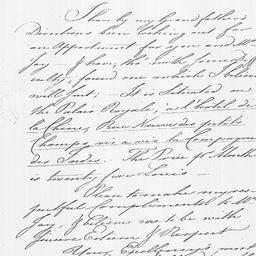 I have by my Grandfather's
Directions been looking out for
an Appartment for you and Mrs
Jay — I have, tho' with some diffi
culty, found one which I believe
will suit; — It is Situated on
the Palais Royale, a l'hotel de
la Chine, Rue Neuve des petits
Champs, vis a vis la Compagnie
des Indes. The Price pr Month
is twenty five Louis —
Please to make my res-
pectful Complements to Mrs
Jay, & believe me to be with
Sincere Esteem & Respect
Your Excellency's most